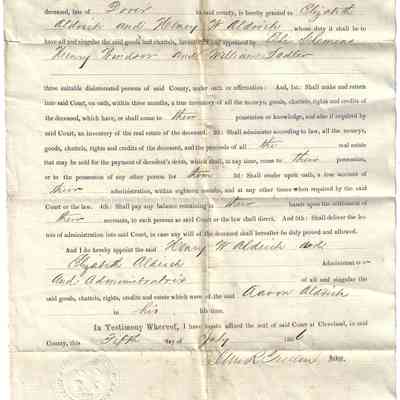 deceased, late of Dover in said county, is hereby granted to Elizabeth
Aldrich and Henry W Aldrich whose duty it shall be to
have all and singular the said goods and chattels, inventoried and appraised by Clemens
Henry Windsor and William Sadler
three suitable disinterested persons of said County, under oath or affirmation: And, 1st: Shall make and return
into said Court, on oath, within three months, a true inventory of all the moneys, goods, chattels, rights and credits of
the deceased, which have, or shall come to their possession or knowledge, and if required by
said Court, an inventory of the real estate of the deceased. 2d: Shall administer according to law, all the moneys,
goods, chattels, rights and credits of the deceased, and the proceeds of all the real estate
that may be sold for the payment of decedent's debts, which shall, at any time, come to their possession,
or to the possession of any other person for them 3d: Shall render upon oath, a true account of
their administration, within eighteen months, and at any other times when required by the said
Court or the law. 4th: Shall pay any balance remaining in their hands upon the settlement of
their accounts, to such persons as said Court or the law shall direct. And 5th: Shall deliver the let-
ters of administration into said Court, in case any will of the deceased shall hereafter be duly proved and allowed.
And I do hereby appoint the said Henry W Aldrich and
Elizabeth Aldrich Administrator
And Administratrix of all and singular the
said goods, chattels, rights, credits and estate which were of the said Aaron Aldrich
in his life time.
In Testimony Whereof, I have hereto affixed the seal of said Court at Cleveland, in said
County, this Fifth day of July 186
Judge.